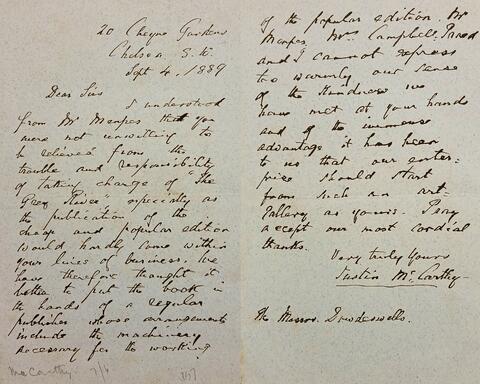 20 Cheyne Gardens
Chelsea S.W.
Sept 4. 1889
Dear Sirs
I understood
from Mr Menpes that you
were not unwilling to
be relieved from the
trouble and responsibility
of taking charge of "The
Grey River" especially as
the publication of the
cheap and popular edition
would hardly come within
your lines of business. We
have therefore thought it
better to put the book in
the hands of a regular
publisher whose arrangements
include the machinery
necessary for the working
McCarthy.
of the popular edition. Mr
Menpes, Mrs Campbell Praed
and I cannot express
too warmly our sense
of the kindness we
have met at your hands
and of the immense
advantage it has been
to us that our enter=
prise should start
from such an art-
gallery as yours. Pray
accept our most cordial
thanks.
Very truly yours
Justin McCarthy
The Messrs. Dowdeswells.